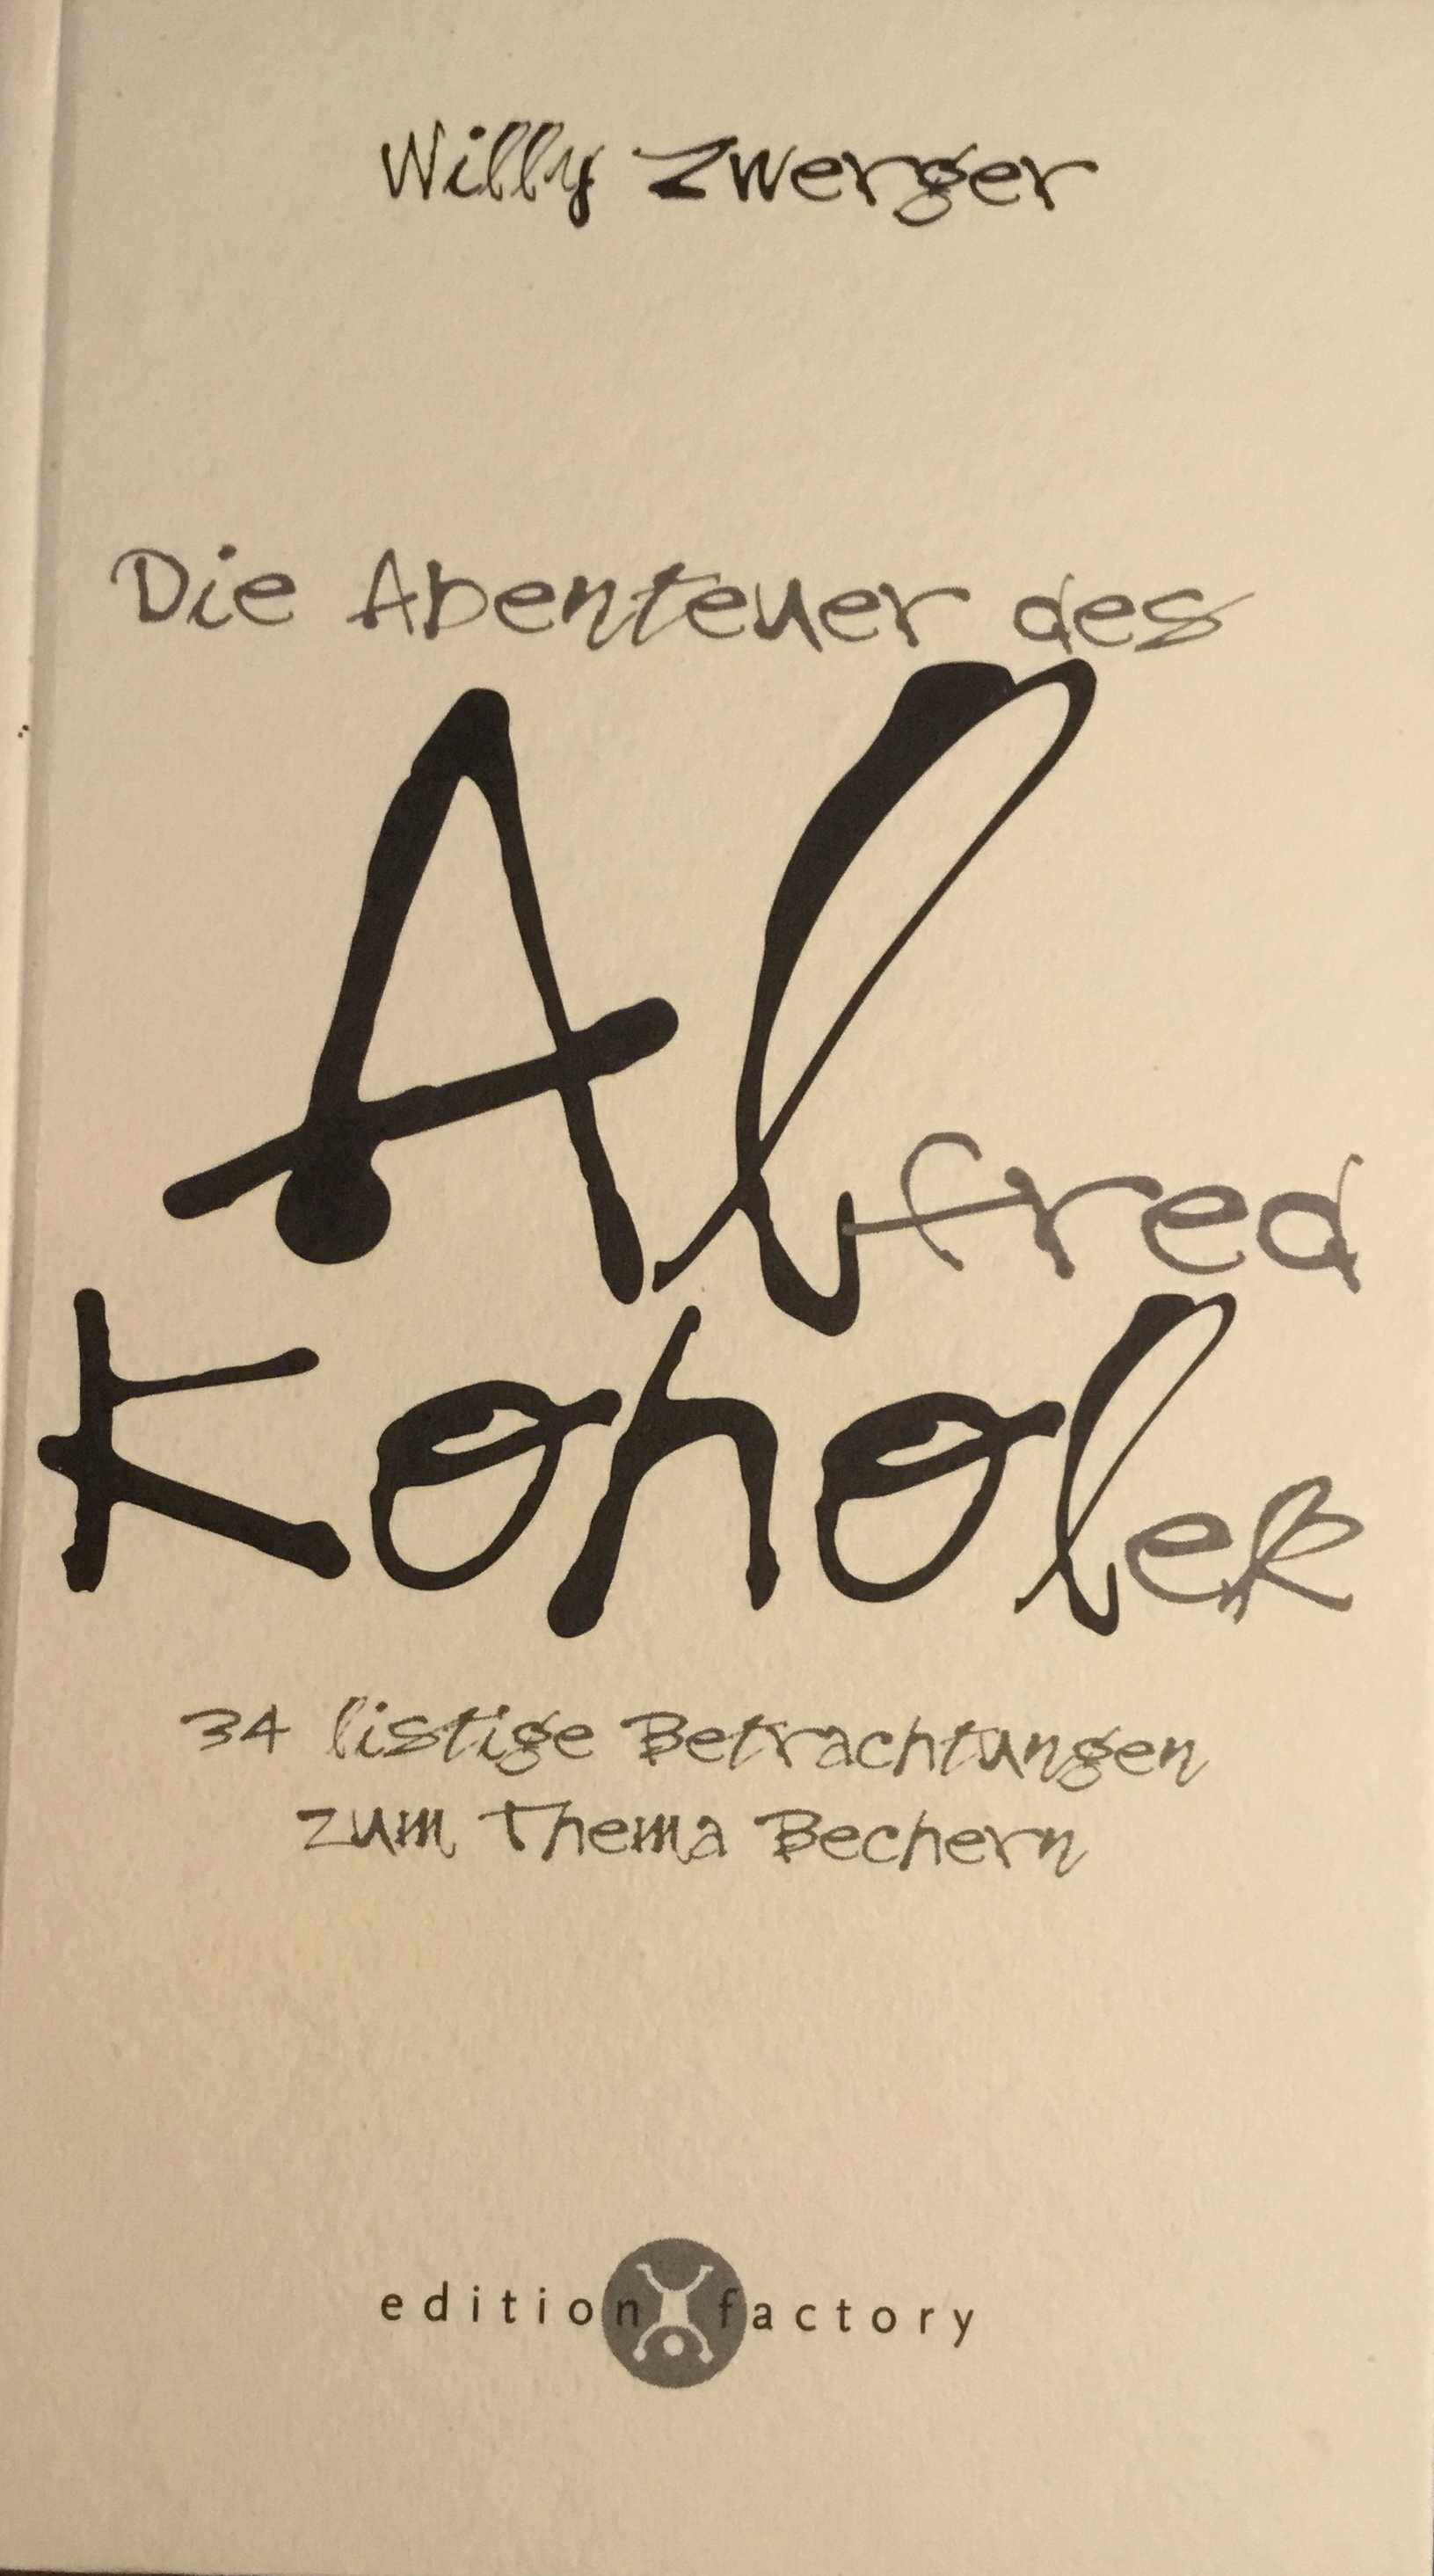 Willy Zwerger
Die Abenteuer des
Alfred
Koholek
34 listige Betrachtungen
zum Thema Bechern
edition factory